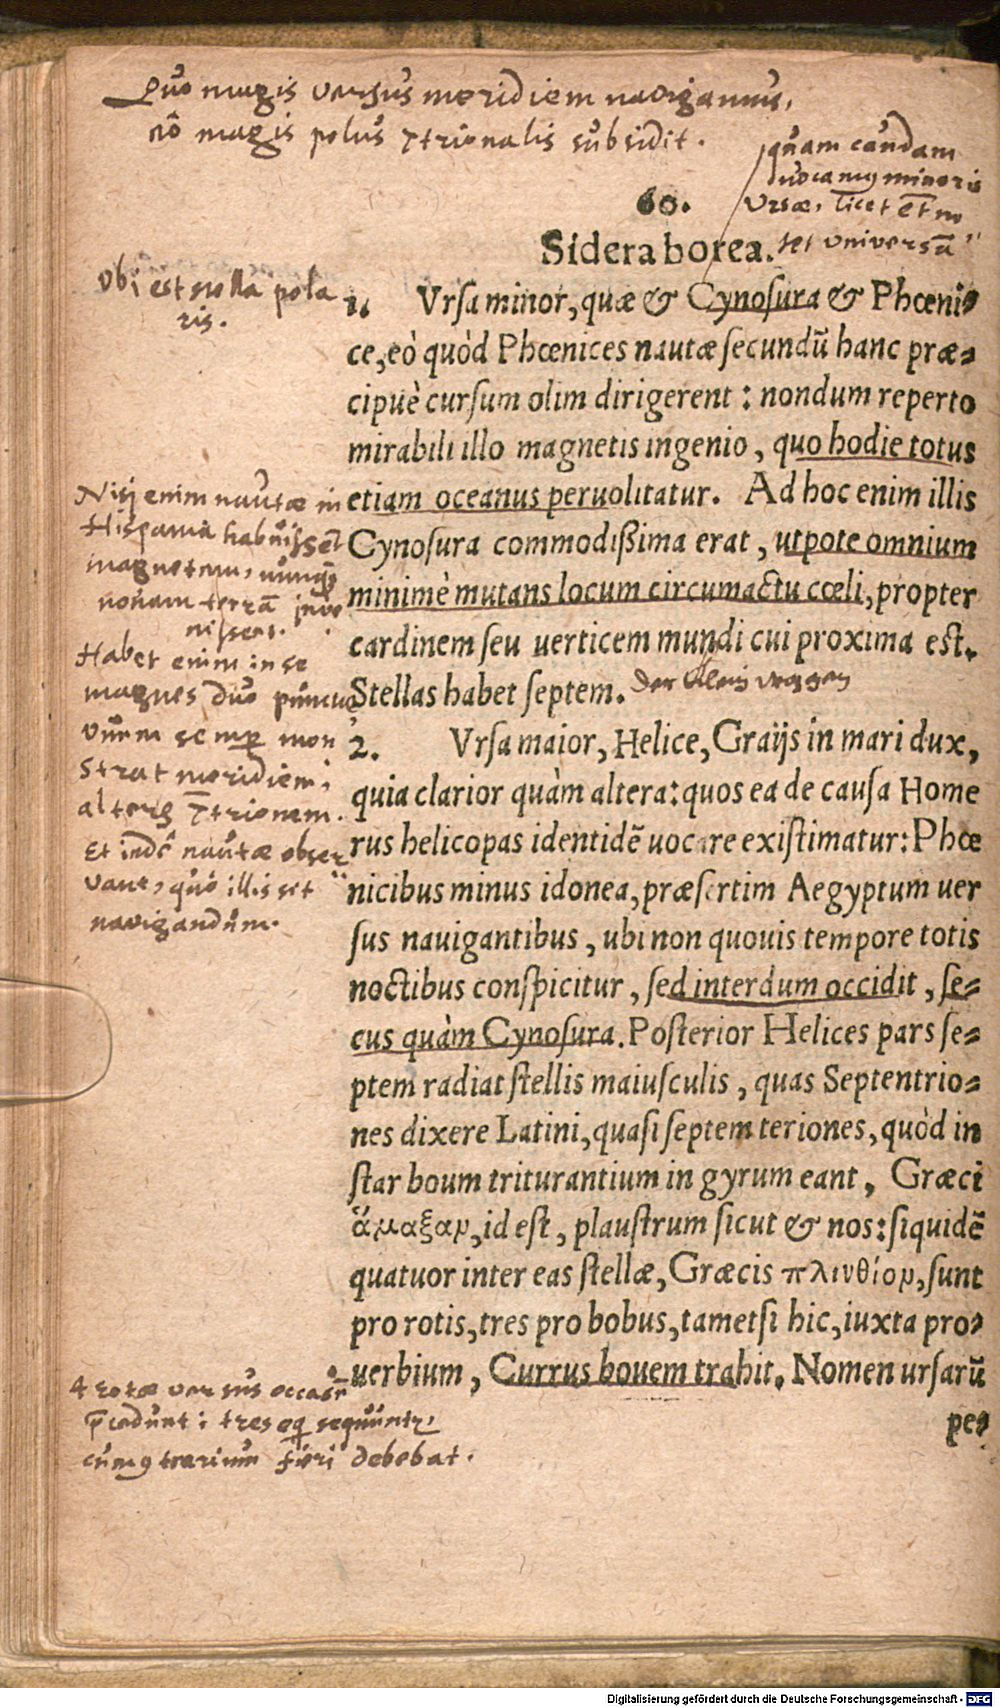 Quo magis versus meridiem navigamus,
eo magis polus 7trionalis subsidit.
quam caudam
vocamus minoris
Ursae, licet et no
tet universā
60.
Sidera borea.
Ubi est stella pola
ris.
1. Vrſa minor, quæ & Cynoſura & Phœni-
ce, eò quòd Phœnices nautæ ſecundũ hanc præ-
cipuè curſum olim dirigerent : nondum reperto
mirabili illo magnetis ingenio, quo hodie totus
etiam oceanus peruolitatur. Ad hoc enim illis
Cynoſura commodiſsima erat, utpote omnium
minimè mutans locum circumactu cœli, propter
cardinem ſeu uerticem mundi cui proxima eſt.
Stellas habet ſeptem. Der klein wagen
Nisi enim nautæ in
Hispania habuissēt
magnetem, nunq̃
novam terrā inve
nissent.
Habet enim in se
magnes duo puncta
unum semper mon
strat meridiem,
alterū 7trionem.
Et inde nautæ obser
vant, quo illis sit
navigandum.
2. Vrſa maior, Helice, Graijs in mari dux,
quia clarior quàm altera: quos ea de cauſa Home
rus helicopas identidẽ uocare exiſtimatur: Phœ
nicibus minus idonea, præſertim Aegyptum uer
ſus nauigantibus, ubi non quouis tempore totis
noctibus conſpicitur, ſed interdum occidit, ſe-
cus quàm Cynoſura. Poſterior Helices pars ſe-
ptem radiat ſtellis maiuſculis, quas Septentrio-
nes dixere Latini, quaſi ſeptem teriones, quòd in
ſtar boum triturantium in gyrum eant, Græci
ἅμαξαν, id eſt, plauſtrum ſicut & nos: ſiquidẽ
quatuor inter eas ſtellæ, Græcis πλινθίον, ſunt
pro rotis, tres pro bobus, tametſi hic, iuxta pro-
uerbium, Currus bouem trahit. Nomen urſarũ
pe-
4 rotæ versus occasū
p̄cedunt : tres eq̄ sequuntr,
cum 9trarium fieri debebat.